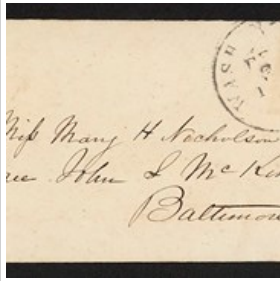 WASH
Miss Mary H Nicholson
John S McKin
Baltimor